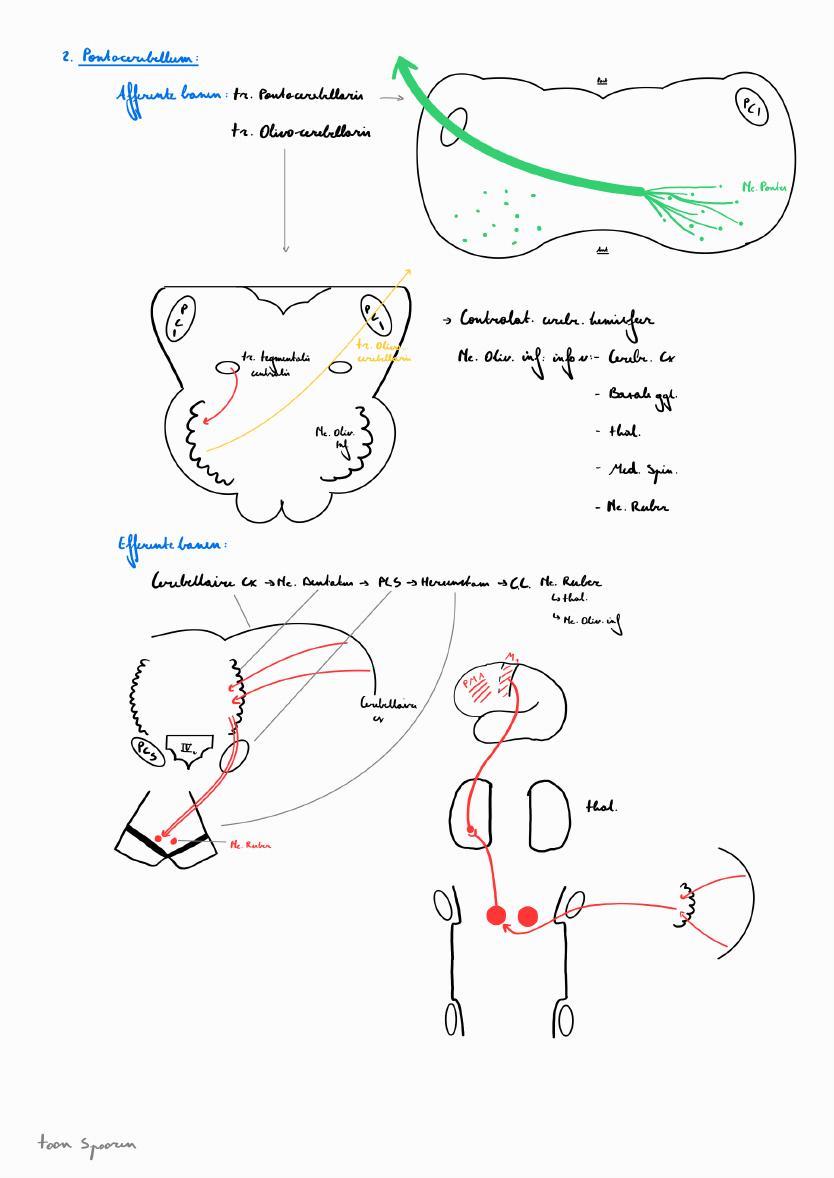 2. Pontocerebellum:
Afferente banen: tr. Pontocerebellaris
tr. Olivo-cerebellaris
PCI
Nc. Pontes
PCI
PCI
tr. Olivo
cerebellaris
tr. tegmentalis
centralis
Nc. Oliv.
inf
→ Controlat. cerebr. hemisfeer
Nc. Oliv. inf: info v: - Cerebr. Cx
- Basale ggl.
- thal.
- Med. Spin.
- Nc. Ruber
Efferente banen:
Cerebellaire Cx → Nc. Dentatus → PCS → Hersenstam → C.L. Nc. Ruber
↳ thal.
↳ Nc. Oliv. inf
Cerebellaire
cx
PCS
IV
Nc. Ruber
PMA
M₁
thal.
toon Spooren